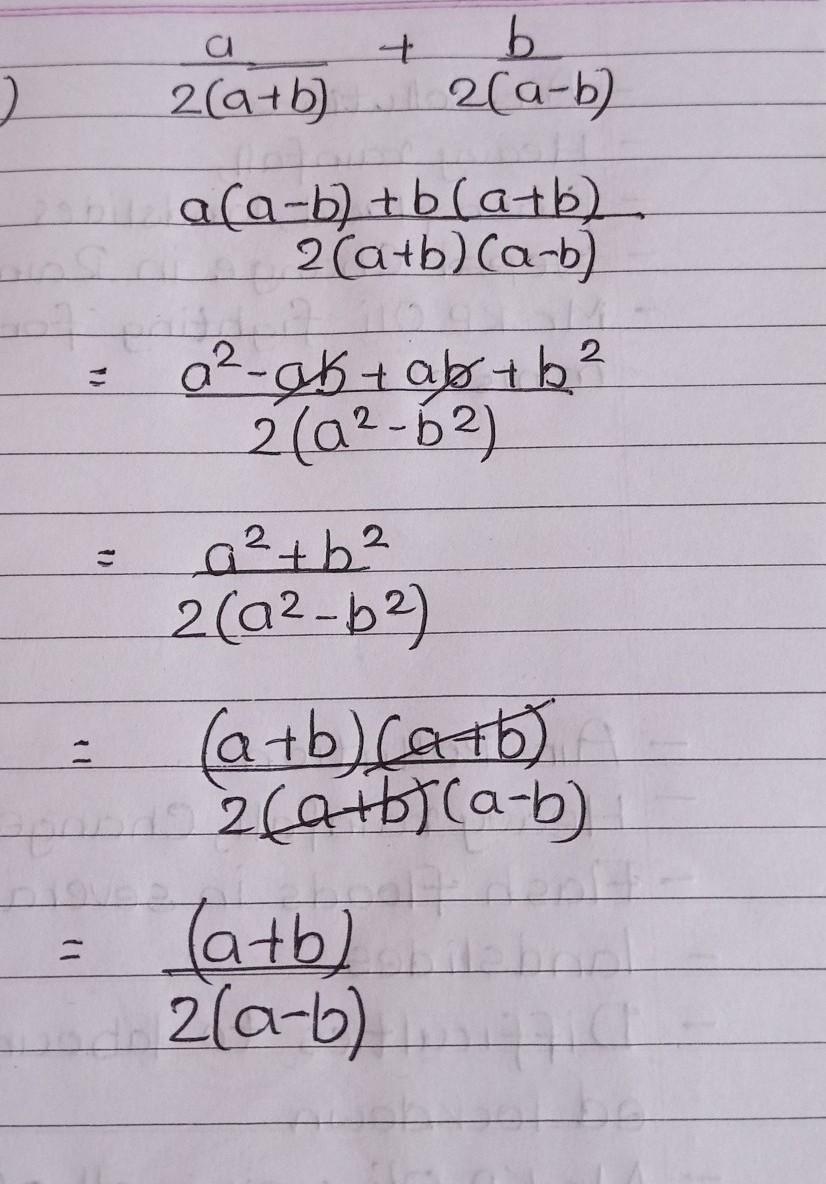 ) a/2(a+b) + b/2(a-b)
a(a-b)+b(a+b)/2(a+b)(a-b)
= a²-ab+ab+b²/2(a²-b²)
= a²+b²/2(a²-b²)
= (a+b)(a+b)/2(a+b)(a-b)
= (a+b)/2(a-b)